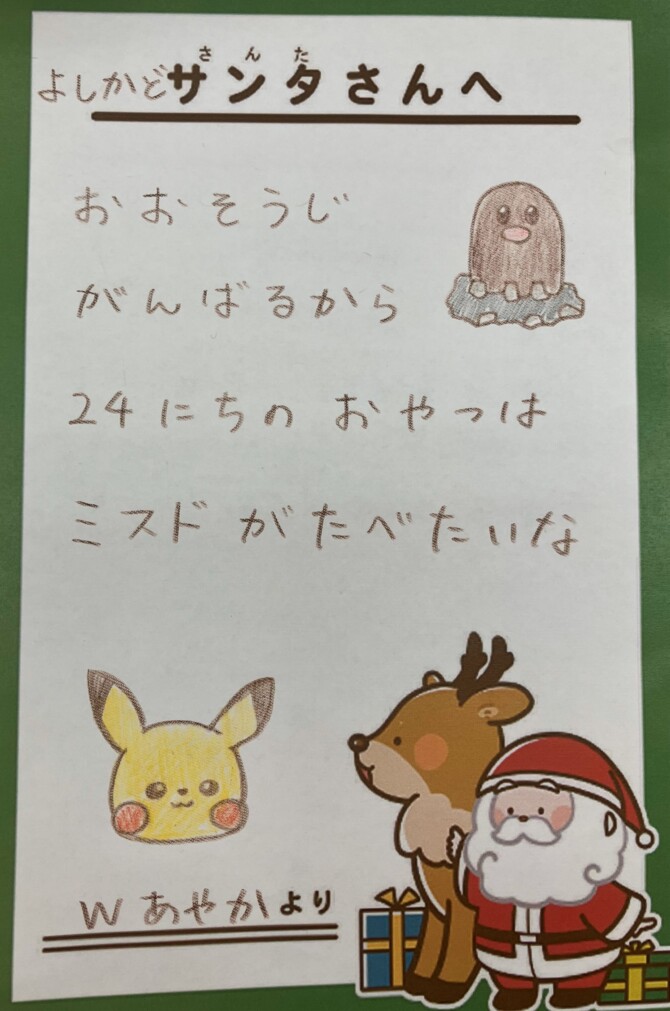 さんた
よしかどサンタさんへ
おおそうじ
がんばるから
24にちの おやつは
ミスドがたべたいな
W あやかより